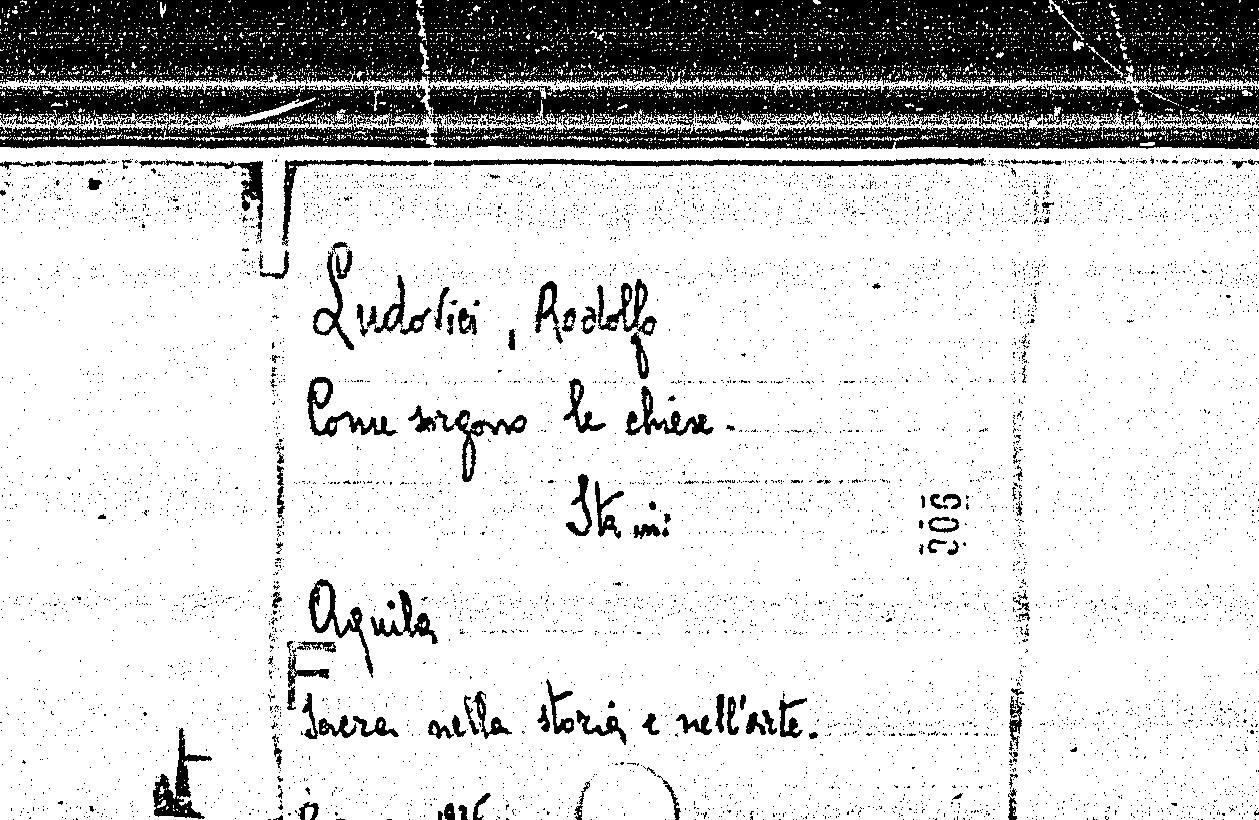 Ludovici, Rodolfo
Come sorgono le chiese.
Sta in:
Aquila
F
Sacra nella storia e nell'arte.